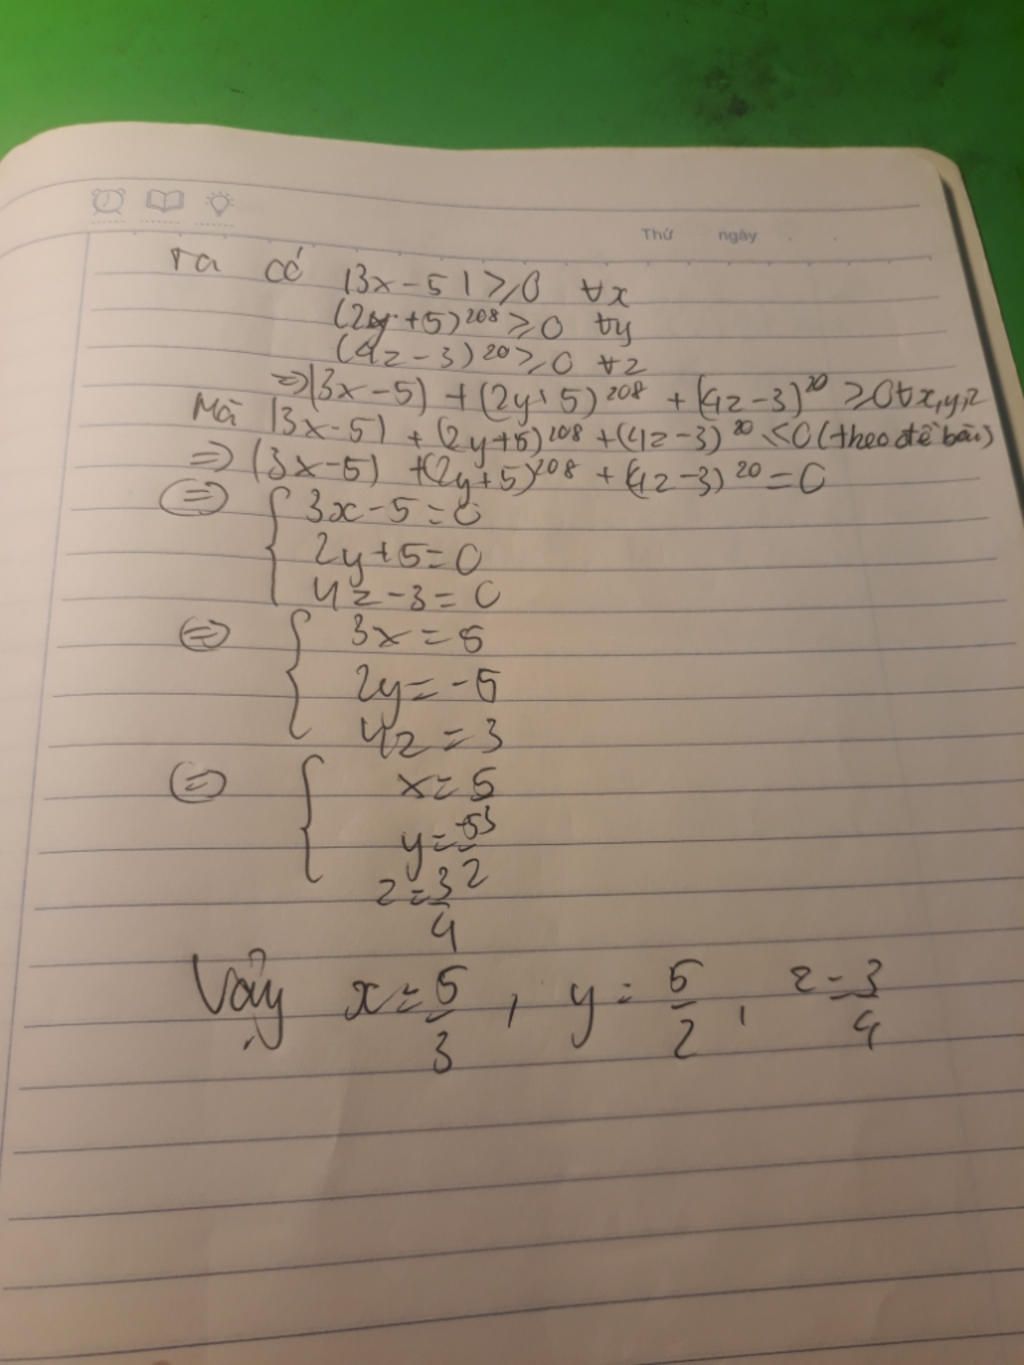 Thứ ngày
Ta có |3x-5| ≥ 0 ∀x
(2y+5)²⁰⁸ ≥ 0 ∀y
(4z-3)²⁰ ≥ 0 ∀z
=> |3x-5| + (2y+5)²⁰⁸ + (4z-3)²⁰ ≥ 0 ∀x,y,z
Mà |3x-5| + (2y+5)²⁰⁸ + (4z-3)²⁰ ≤ 0 (theo đề bài)
=> (3x-5) + (2y+5)²⁰⁸ + (4z-3)²⁰ = 0
<=> { 3x-5=0
2y+5=0
4z-3=0
<=> { 3x=5
2y=-5
4z=3
<=> { x=5/3
y=-5/2
z=3/4
Vậy x=5/3, y=5/2, z=3/4